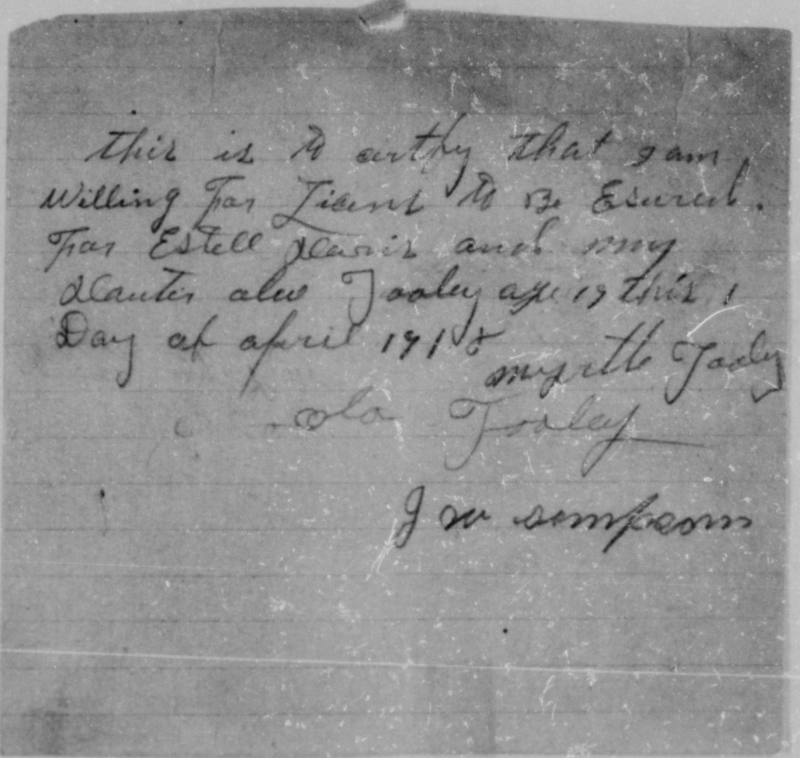 this is to certfy that I am
Willing For Licens to Be Esured.
For Estell Davis and my
Dauter Tooley age 19 this 1
Day of april 1918
myrtle Tooley
ola Tooley
J W simpson